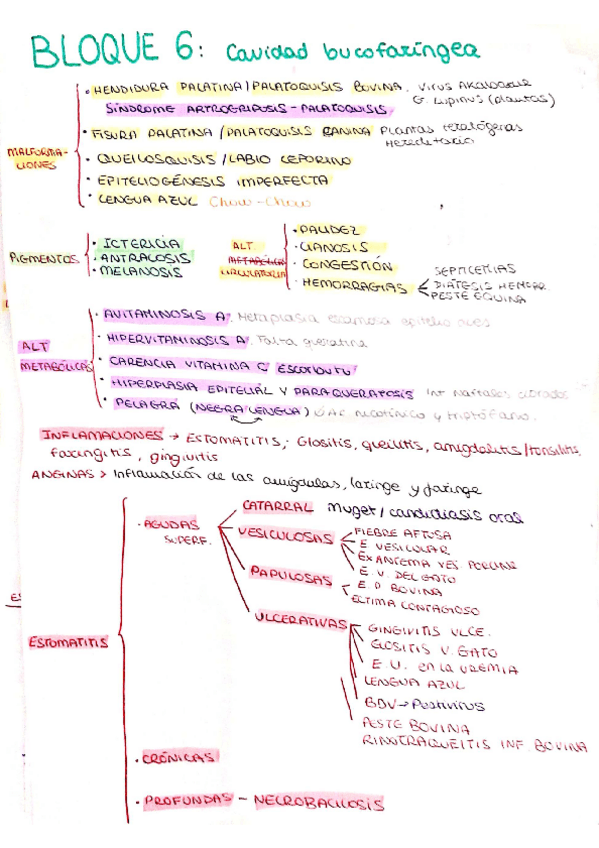 BLOQUE 6: Cavidad bucofaríngea
MALFORMACIONES
· HENDIDURA PALATINA / PALATOQUISIS BOVINA. Virus AKABANE
G. Lupinus (plantas)
SÍNDROME ARTROGRIPOSIS - PALATOQUISIS
· FISURA PALATINA / PALATOQUISIS CANINA Plantas teratógenas
Hereditario
· QUEILOSQUISIS / LABIO LEPORINO
· EPITELIOGÉNESIS IMPERFECTA
· LENGUA AZUL Chow-Chow
PIGMENTOS
· ICTERICIA
· ANTRACOSIS
· MELANOSIS
ALT
CIRCULATORIA
· PALIDEZ
· CIANOSIS
· CONGESTIÓN
· HEMORRAGIAS
SEPTICEMIAS
DIÁTESIS HEMORR.
PESTE EQUINA
ALT METABÓLICAS
· AVITAMINOSIS A. Metaplasia escamosa epitelio aves
· HIPERVITAMINOSIS A. Falta queratina
· CARENCIA VITAMINA C Escorbuto
· HIPERPLASIA EPITELIAL Y PARAQUERATOSIS Int Naftalenos clorados
· PELAGRA (NEGRA LENGUA) ác nicotínico y triptófano.
INFLAMACIONES → ESTOMATITIS; Glositis, queilitis, amigdalitis/tonsilitis,
faringitis, gingivitis
ANGINAS > Inflamación de las amígdalas, laringe y faringe
ESTOMATITIS
· AGUDAS
SUPERF.
CATARRAL Muget / candidiasis oral
VESICULOSAS
FIEBRE AFTOSA
E VESICULAR
EXANTEMA VES PORCINO
E. V. DEL GATO
PAPULOSAS
E. P. BOVINA
ECTIMA CONTAGIOSO
ULCERATIVAS
GINGIVITIS ULCE.
GLOSITIS V. GATO
E.U. en la UREMIA
LENGUA AZUL
BDV → Pestivirus
PESTE BOVINA
RINOTRAQUEITIS INF BOVINA
· CRÓNICAS
· PROFUNDAS - NECROBACILOSIS